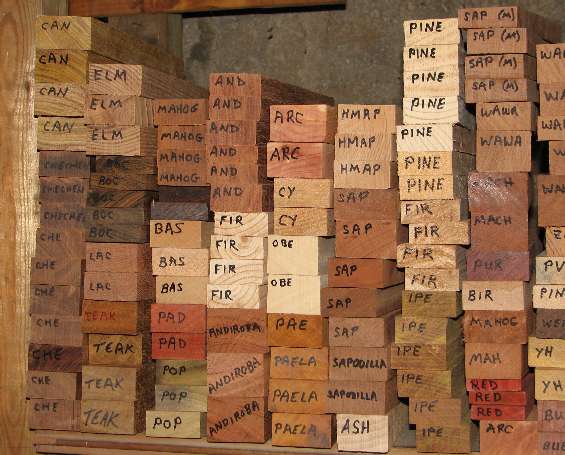 CAN
CAN
CAN
CAN
CHECHEN
CHECHEN
CHECHEN
CHE
CHE
CHE
CHE
CHE
CHE
CHE
ELM
ELM
ELM
BOC
BOC
BOC
BOC
LAC
LAC
TEAK
TEAK
TEAK
TEAK
MAHOG
MAHOG
MAHOG
MAHOG
BAS
BAS
BAS
PAD
PAD
POP
POP
POP
AND
AND
AND
AND
AND
FIR
FIR
FIR
FIR
ANDIROBA
ANDIROBA
ANDIROBA
ARC
ARC
CY
CY
OBE
OBE
PAE
PAELA
PAELA
PAELA
HMAP
HMAP
HMAP
SAP
SAP
SAP
SAP
SAP
SAPODILLA
SAPODILLA
ASH
PINE
PINE
PINE
PINE
PINE
PINE
PINE
FIR
FIR
FIR
FIR
IPE
IPE
IPE
IPE
IPE
IPE
SAP (M)
SAP (M)
SAP (M)
SAP (M)
WAWA
WAWA
MACH
MACH
PUR
BIR
MAHOG
MAH
RED
RED
RED
ARC
YH
YH